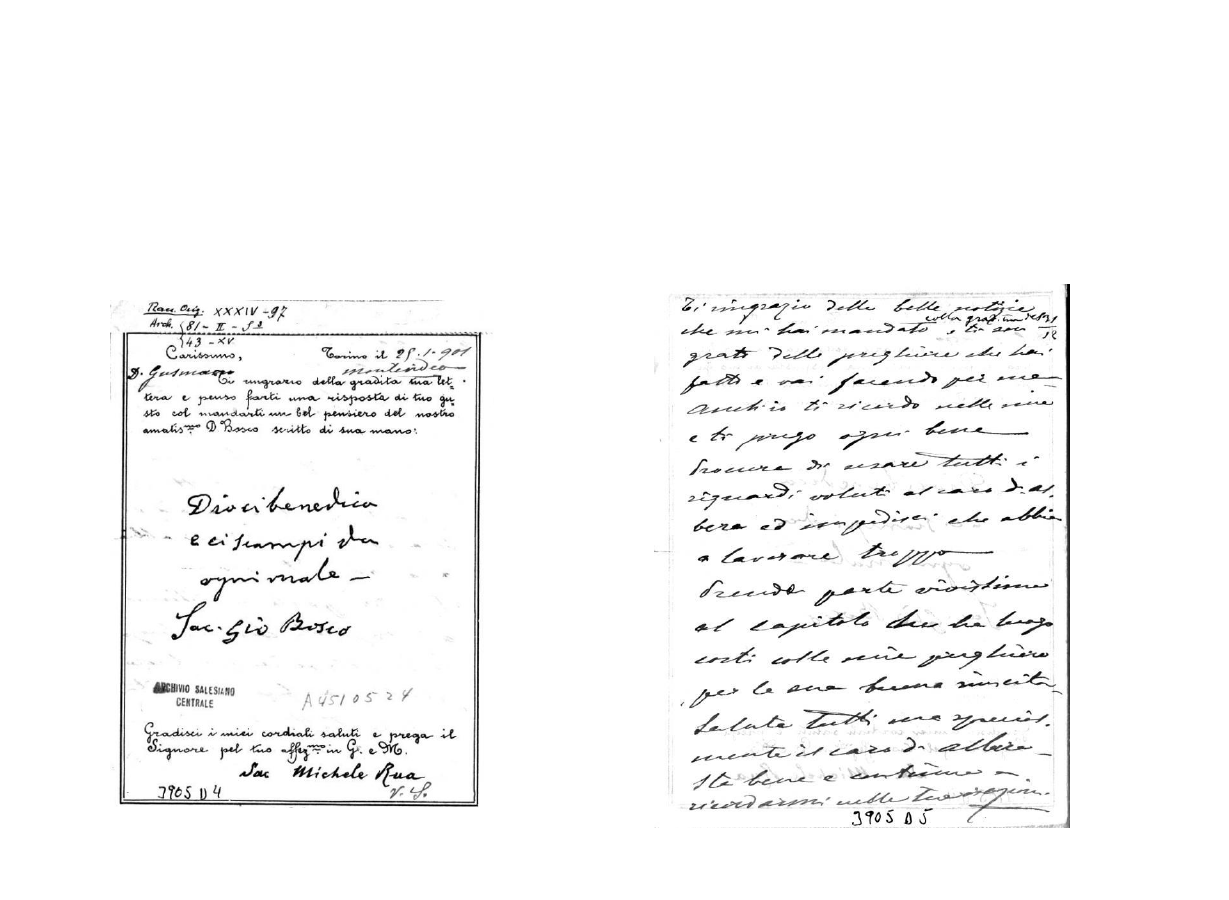 Ran. Orig. XXXIV - 97
Arch. 81 - II -
43 - XV
Carissimo, Torino il 25.1.901
D. Gusmano Montevideo
Ti ringrazio della gradita tua let-
tera e penso farti una risposta di tuo gu-
sto col mandarti un bel pensiero del nostro
amatis.mo D Bosco scritto di sua mano:
Dio ci benedica
e ci scampi da
ogni male -
Sac. Gio Bosco
ARCHIVIO SALESIANO
CENTRALE
A4510524
Gradisci i miei cordiali saluti e prega il
Signore pel tuo affez.mo in G. e M.
Sac Michele Rua
V. S.
3905 D 4
Ti ringrazio delle belle notizie
che mi hai mandato colla e ti son
grato delle preghiere che hai
fatto e vai facendo per me
Anch'io ti ricordo nelle mie
e ti prego ogni bene
Procura di usare tutti i
riguardi voluti al caro D. Al-
bera ed impedisci che abbia
a lavorare troppo
Prendo parte vivissima
al capitolo che ha luogo
costì colle mie preghiere
per la sua buona riuscita
Saluta tutti ma special-
mente il caro D. Albera
Sta bene e continua a
ricordarmi nelle tue orazioni.
3905 D 5